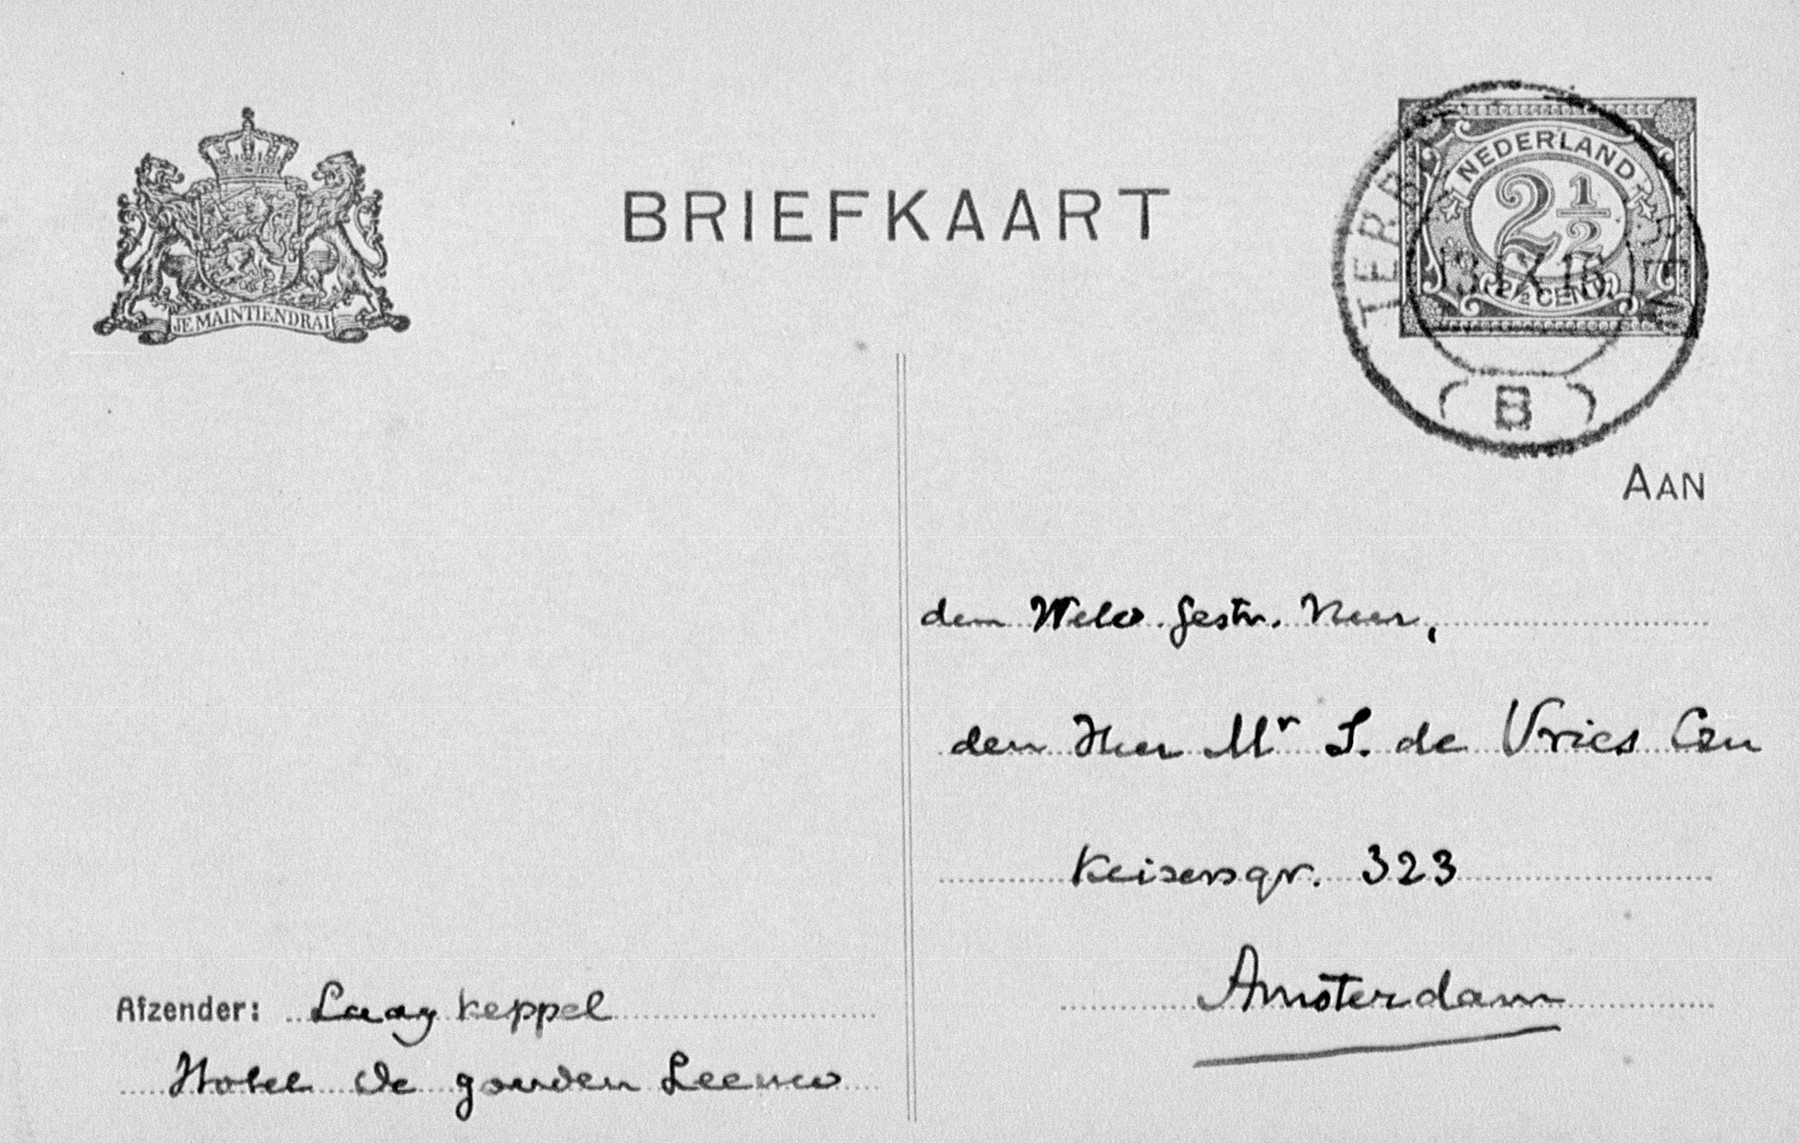 BRIEFKAART
JE MAINTIENDRAI
NEDERLAND
2 1/2
2 1/2 CENT
TERB
B
AAN
den Welew. gestr. Heer,
den Heer Mr S. de Vries Czn
Keizersgr. 323
Amsterdam
Afzender: Laag Keppel
Hotel de gouden Leeuw